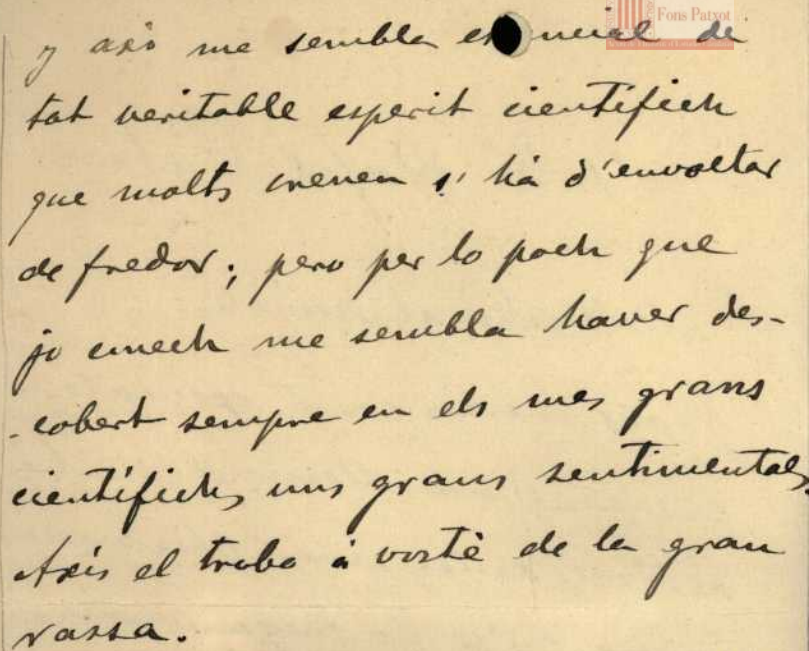 Fons Patxot
y axó me sembla esencial de
tot veritable esperit científich
que molts creuen s' há d'envoltar
de fredor; pero per lo poch que
jo conech me sembla haver des-
-cobert sempre en els mes grans
científichs uns grans sentimentals.
Axís el trobo á vosté de la gran
rassa.